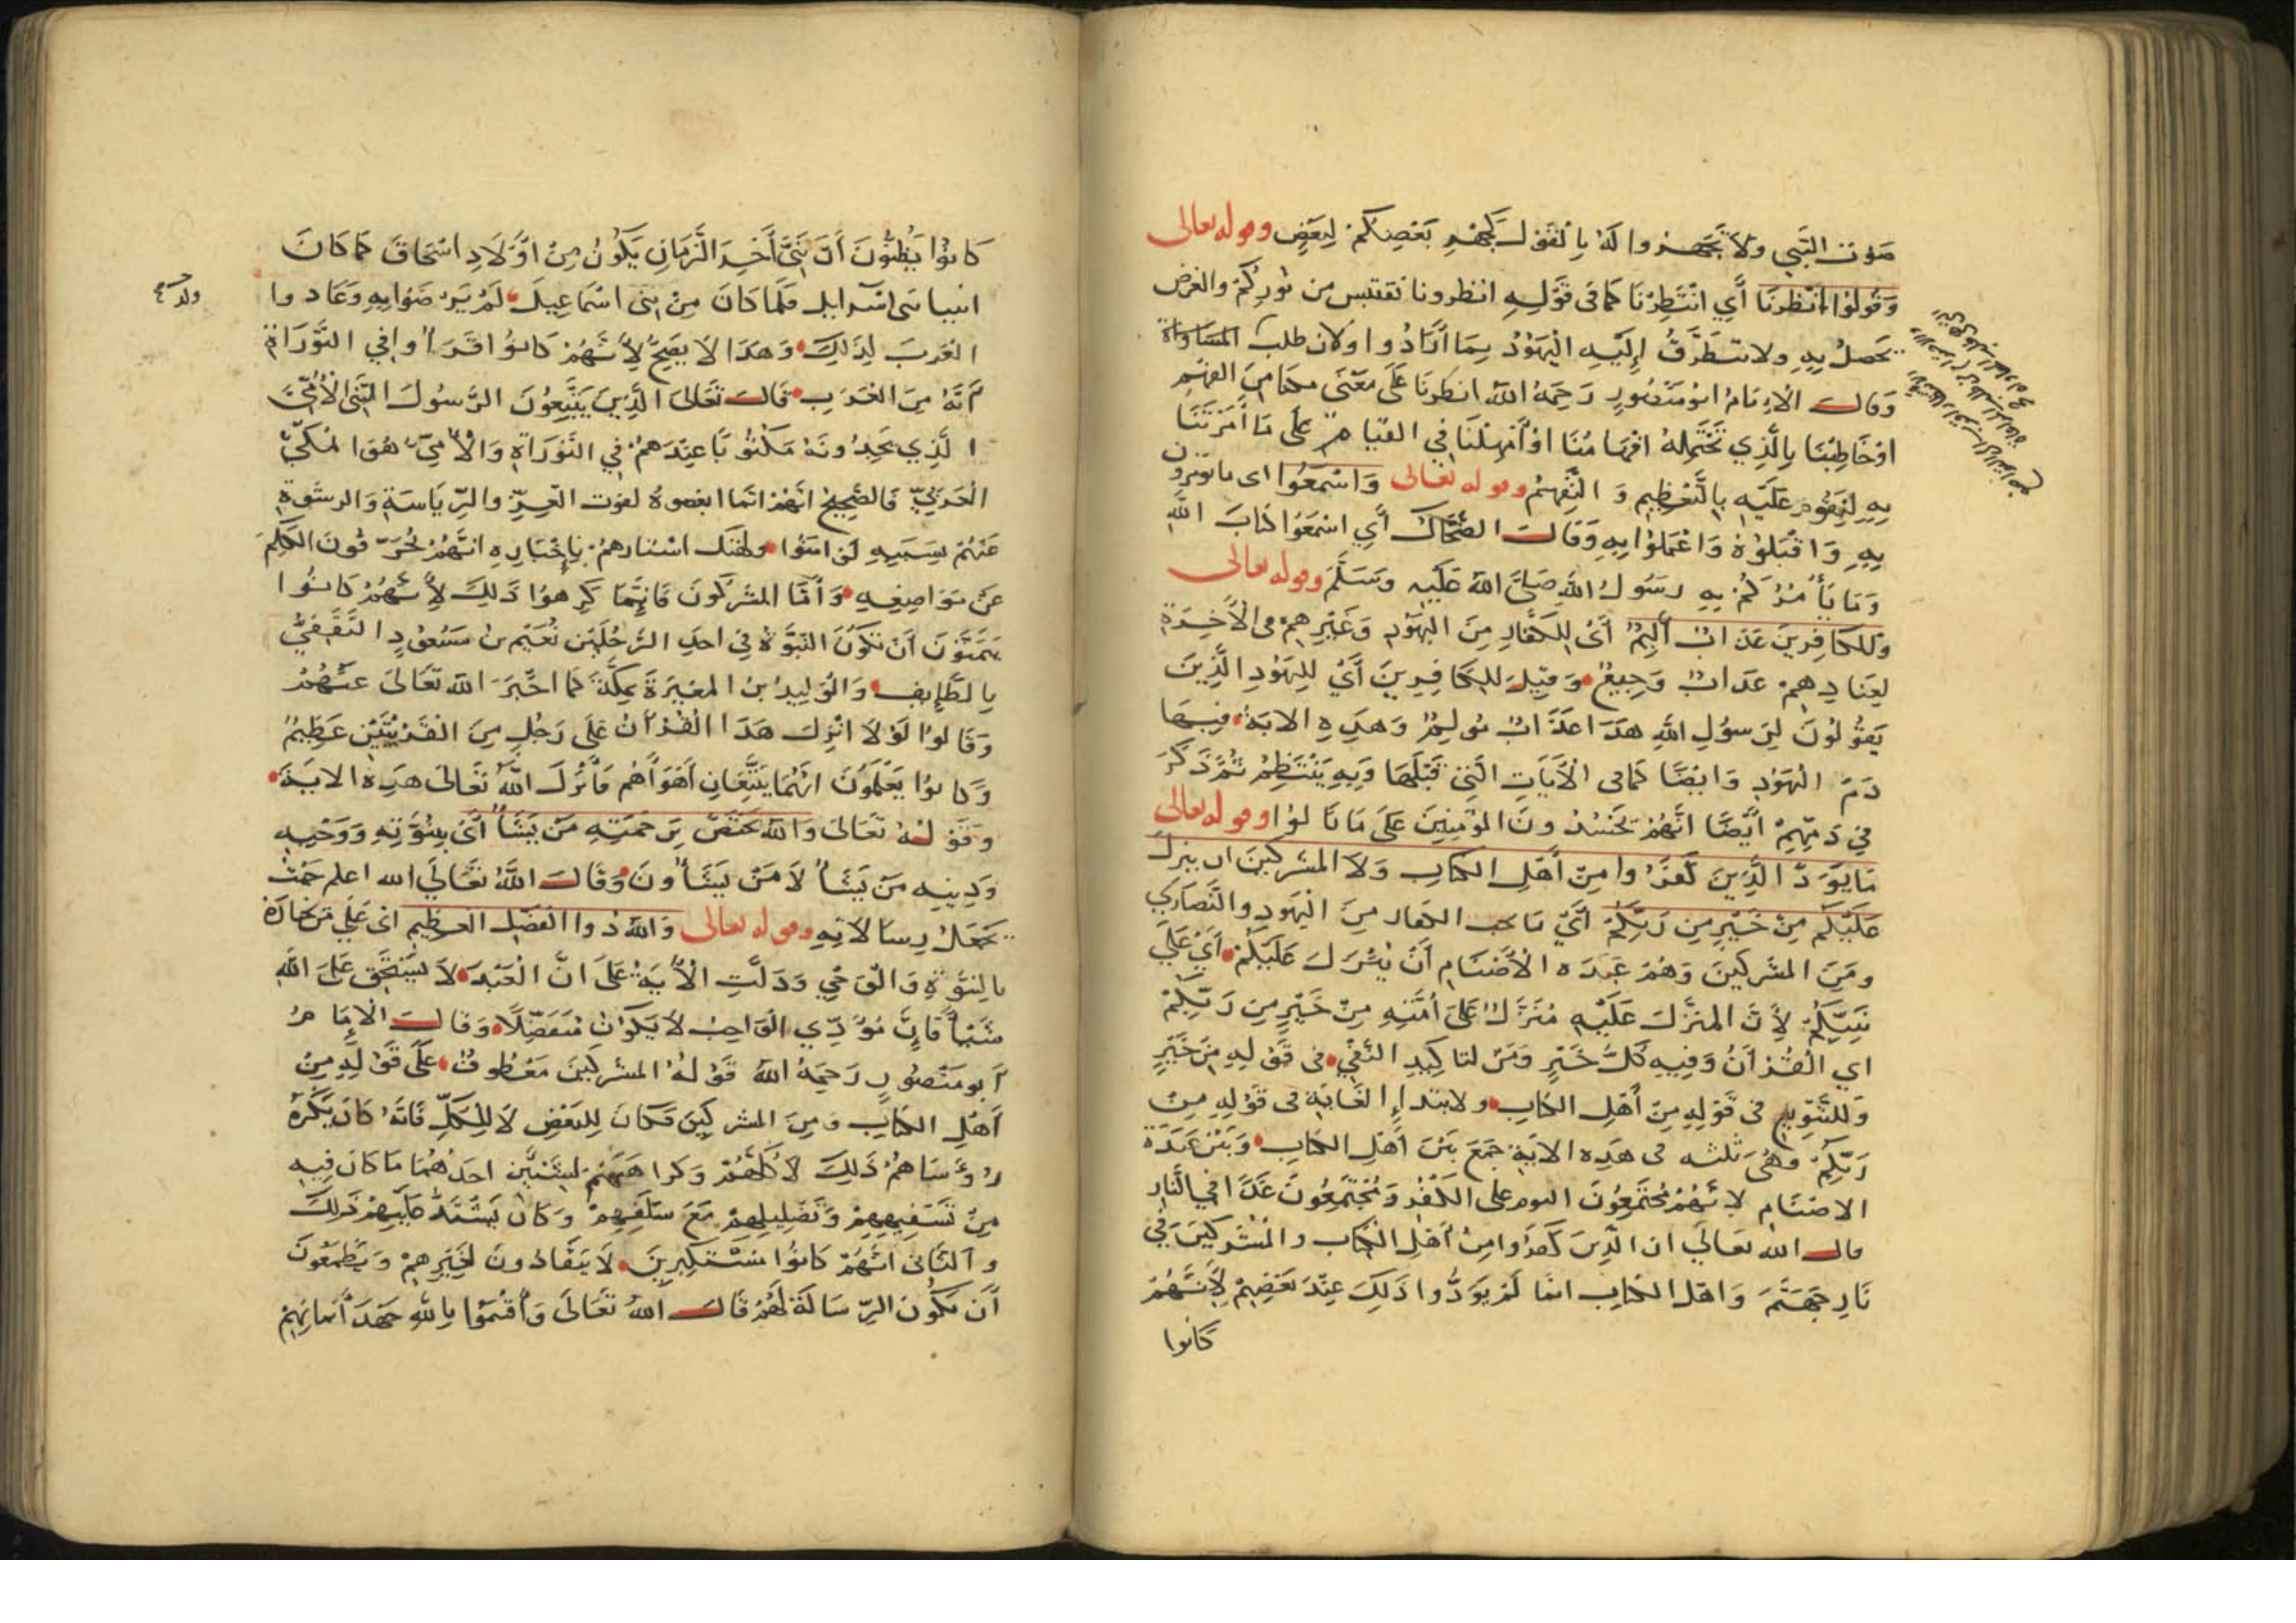 صَوْتِ النَّبِيِ ولا تَجْهَروا لَهُ بِالْقَوْلِ كَجَهْرِ بَعْضِكُمْ لِبَعْضٍ وقوله تعالى
وَقُولُوْا انْظُرْنَا أَيِ انْتَظِرْنَا كما فى قَوْلِهِ انظرونا نقتبس من نُورِكُمْ والغرض
يحصلُ بِهِ ولا يتَطَرَّقُ إِلَيْهِ الْيَهُوْدُ بِمَا أَرَادُوا ولان طلب المساواة
وَقالَ الْاِمَامُ ابُو مَنْصُورٍ رَحِمَهُ اللهُ انظرنَا عَلَى مَعْنَى مِنَ الفهم
اوْ خَاطِبْنَا بِالَّذِي تَحْتَمِلُهُ افْهَامُنَا اوْ أَمْهِلْنَا فِي القيام على مَا أَمَرْتَنَا
بِهِ لِنَقُوْمَ عَلَيْهِ بِالتَّعْظِيمِ وَ التَّفَهُّمِ وقوله تعالى وَاسْمَعُوْا اى ما تؤمرون
بِهِ وَاقْبَلُوْهُ وَاعْمَلُوْا بِهِ وَقَالَ الضَّحَّاكُ أَيِ اسْمَعُوْا كتابَ اللهِ
وَمَا يَأْمُرُكُمْ بِهِ رسُولُ اللهِ صَلَّى اللهُ عَلَيْهِ وَسَلَّمَ وقوله تعالى
وَلِلكافِرِينَ عَذَابٌ أَلِيْمٌ أَىْ لِلْكُفَّارِ مِنَ الْيَهُوْدِ وَغَيْرِهِمْ فى الْآخِرَةِ
لِعِنَادِهِمْ عَذَابٌ وَجِيعٌ وَقِيْلَ للكَافِرِيْنَ أَيْ لِلْيَهُوْدِ الَّذِينَ
يَقُوْلُوْنَ لِرَسُوْلِ اللهِ هَذَا عَذَابٌ مُولِمٌ وَهَذِهِ الآيَةُ فِيْهَا
ذَمُّ الْيَهُوْدِ وَايْضًا كما فى الْآيَاتِ الَّتِى قَبْلَهَا وَبِهِ يَنْتَظِمُ ثُمَّ ذَكَرَ
فِي ذَمِّهِمْ أَيْضًا انَّهُمْ يَحْسُدُونَ المؤْمِنِيْنَ عَلَى مَا نَالُوْا وقوله تعالى
مَا يَوَدُّ الَّذِيْنَ كَفَرُوا مِنْ أَهْلِ الكتابِ وَلَا المشركِيْنَ ان ينزلَ
عَلَيْكُم مِنْ خَيْرٍ مِن رَبِّكُمْ أَيْ مَا يحب الكفار مِنَ الْيَهُودِ والنَّصَارَى
ومِنَ المشركِيْنَ وَهُمْ عَبَدَه الْأَصْنَامِ أَنْ يُنْزَلَ عَلَيْكُمْ أَيْ عَلَى
نَبِيِّكُمْ لِأَنَّ المنَزَّلَ عَلَيْهِ مُنَزَّلٌ عَلَى أُمَّتِهِ مِنْ خَيْرٍ مِن رَبِّكُمْ
اي القُرْآنُ وَفِيهِ كُلُّ خَيْرٍ وَمِنْ لتاكِيدِ النَّفْيِ فى قَوْلِهِ مِنْ خَيْرٍ
وَللتَّنْوِيعِ فى قَوْلِهِ مِنْ أَهْلِ الكتابِ ولابتداءِ الْغَايَةِ فى قَوْلِهِ مِنْ
رَبِّكُمْ وَهْىَ ثلثه فى هَذِه الآيَةِ جَمَعَ بَيْنَ أَهْلِ الكتَابِ وَبَيْنَ عَبَدَةِ
الاصْنَامِ لِأَنَّهُمْ مُجْتَمِعُوْنَ اليوم على الكُفْرِ وَمُجْتَمِعُوْنَ غَدًا فِي النَّارِ
قالَ الله تعَالَى ان الَّذِيْنَ كَفَرُوا مِنْ أَهْلِ الْكِتَابِ وَالْمُشْرِكِيْنَ فِي
نَارِ جَهَنَّمَ وَاهْلُ الكتابِ انما لَمْ يَوَدُّوا ذَلِكَ عِنْدَ بَعْضِهِمْ لِأَنَّهُمْ
كانوا
كَانُوْا يَظُنُّوْنَ أَنَّ نَبِيَّ آخِرِ الزَّمَانِ يَكُوْنُ مِنْ اوْلَادِ اسْحَاقَ كَمَا كَانَ
انبياء بنى اسرائيل فلمَّا كانَ مِنْ بَنِى اسْمَاعِيلَ لَمْ يَرَوْ ضَوْابِهِ وَعَادوا
العَرَبَ لِذَلِكَ وَهَذَا لَا يَصِحُّ لِأَنَّهُمْ كانُوْا قَرَأُوا فِي التَّوْرَاةِ
أَنَّهُ مِنَ الْعَرَبِ قَالَ تَعَالَى الَّذِيْنَ يَتَّبِعُوْنَ الرَّسُوْلَ النَّبِيَّ الْأُمِّيَّ
الَّذِي يَجِدُونَهُ مَكْتُوْبًا عِنْدَهُمْ فِي التَّوْرَاةِ وَالْأُمِّيُّ هُوَ المَكِّيُّ
الْعَرَبِيُّ فَالصَّحِيْحُ انَّهُمْ انَّمَا ابغضوهُ لفوت العِزِّ والرِّيَاسَةِ وَالرشوةِ
عَنْهُمْ بِسَبَبِهِ لَوْ امَنُوْا ولهتك استارهِمْ بِاِخْبَارِهِ انَّهُمْ يُحَرِّفُوْنَ الْكَلِمَ
عَنْ مَوَاضِعِهِ وَأَمَّا المشركُونَ فَانَّمَا كَرِهُوْا ذَلِكَ لِأَنَّهُمْ كانُوْا
يَتَمَنَّوْنَ أَنْ تَكُوْنَ النُّبُوَّةُ فِي احدِ الرَّجُلَيْنِ نُعَيْمِ بن مَسْعُوْدٍ الثَّقَفِيُّ
بِالطَّائِفِ وَالْوَلِيْدُ بْنُ المغِيْرَةَ بِمَكَّةَ كَمَا اخْبَرَ اللهُ تَعَالَى عَنْهُمْ
وَقَالُوْا لَوْلَا انْزِلَ هَذَا الْقُرْآنُ عَلَى رَجُلٍ مِنَ القَرْيَتَيْنِ عَظِيْمٌ
وَكانُوْا يَعْلَمُوْنَ انَّهُمَا يَتَّبِعَانِ أَهْوَاءَهُمْ فَأَنْزَلَ اللهُ تَعَالَى هَذِهِ الآيَةَ
وَقَوْلُهُ تَعَالَى وَاللهُ يَخْتَصُّ بِرَحْمَتِهِ مَنْ يَشَاءُ أَىْ بِنُبُوَّتِهِ وَوَحْيِهِ
وَدِينِهِ مَنْ يَشَاءُ لَا مَنْ يَشَاءُونَ وَقَالَ اللهُ تَعَالَى الله اعلم حَيْثُ
يَجْعَلُ رِسَالَاتِهِ وقوله تعالى وَاللهُ ذُوا الْفَضْلِ الْعَظِيمِ اى عَلَى مَن اختاره
بالنُّبُوَّةِ وَالْوَحْيِ وَدَلَّتِ الْآيَةُ عَلَى انَّ الْعَبْدَ لَا يَسْتَحِقُّ عَلَى اللهِ
شَيْئاً فَاِنَّ مُؤَدِّي الْوَاجِبِ لَا يَكُوْنُ مُتَفَضِّلًا وَقالَ الْاِمَامُ
أَبو مَنْصُورٍ رَحِمَهُ اللهُ قَوْلُهُ المشركِيْنَ مَعْطُوفٌ عَلَى قَوْلِهِ مِنْ
أَهْلِ الكتابِ وَمِنَ المشركِيْنَ فَكَانَ لِلْبَعْضِ لَا لِلْكُلِّ فَانَّهُ كَانَ يَكْرَهُ
رُؤَسَاهُمْ ذَلِكَ لَا كُلُّهُمْ وَكراهَتُهُمْ لِشَيْئَيْنِ احَدُهُمَا مَا كَانَ فِيهِ
مِنْ تَسْفِيْهِهِمْ وَتَضْلِيلِهِمْ مَعَ سَلَفِهِمْ وَكانَ يَشْتَدُّ عَلَيْهِمْ ذَلِكَ
وَالثَّانِى انَّهُمْ كَانُوْا مُسْتَكْبِرِيْنَ لَا يَنْقَادُونَ لِغَيْرِهِمْ وَيَطْمَعُوْنَ
أَنْ تَكُوْنَ الرِّسَالَةُ لَهُمْ قَالَ اللهُ تَعَالَى وَأَقْسَمُوْا بِاللهِ جَهْدَ أَيْمَانِهِمْ